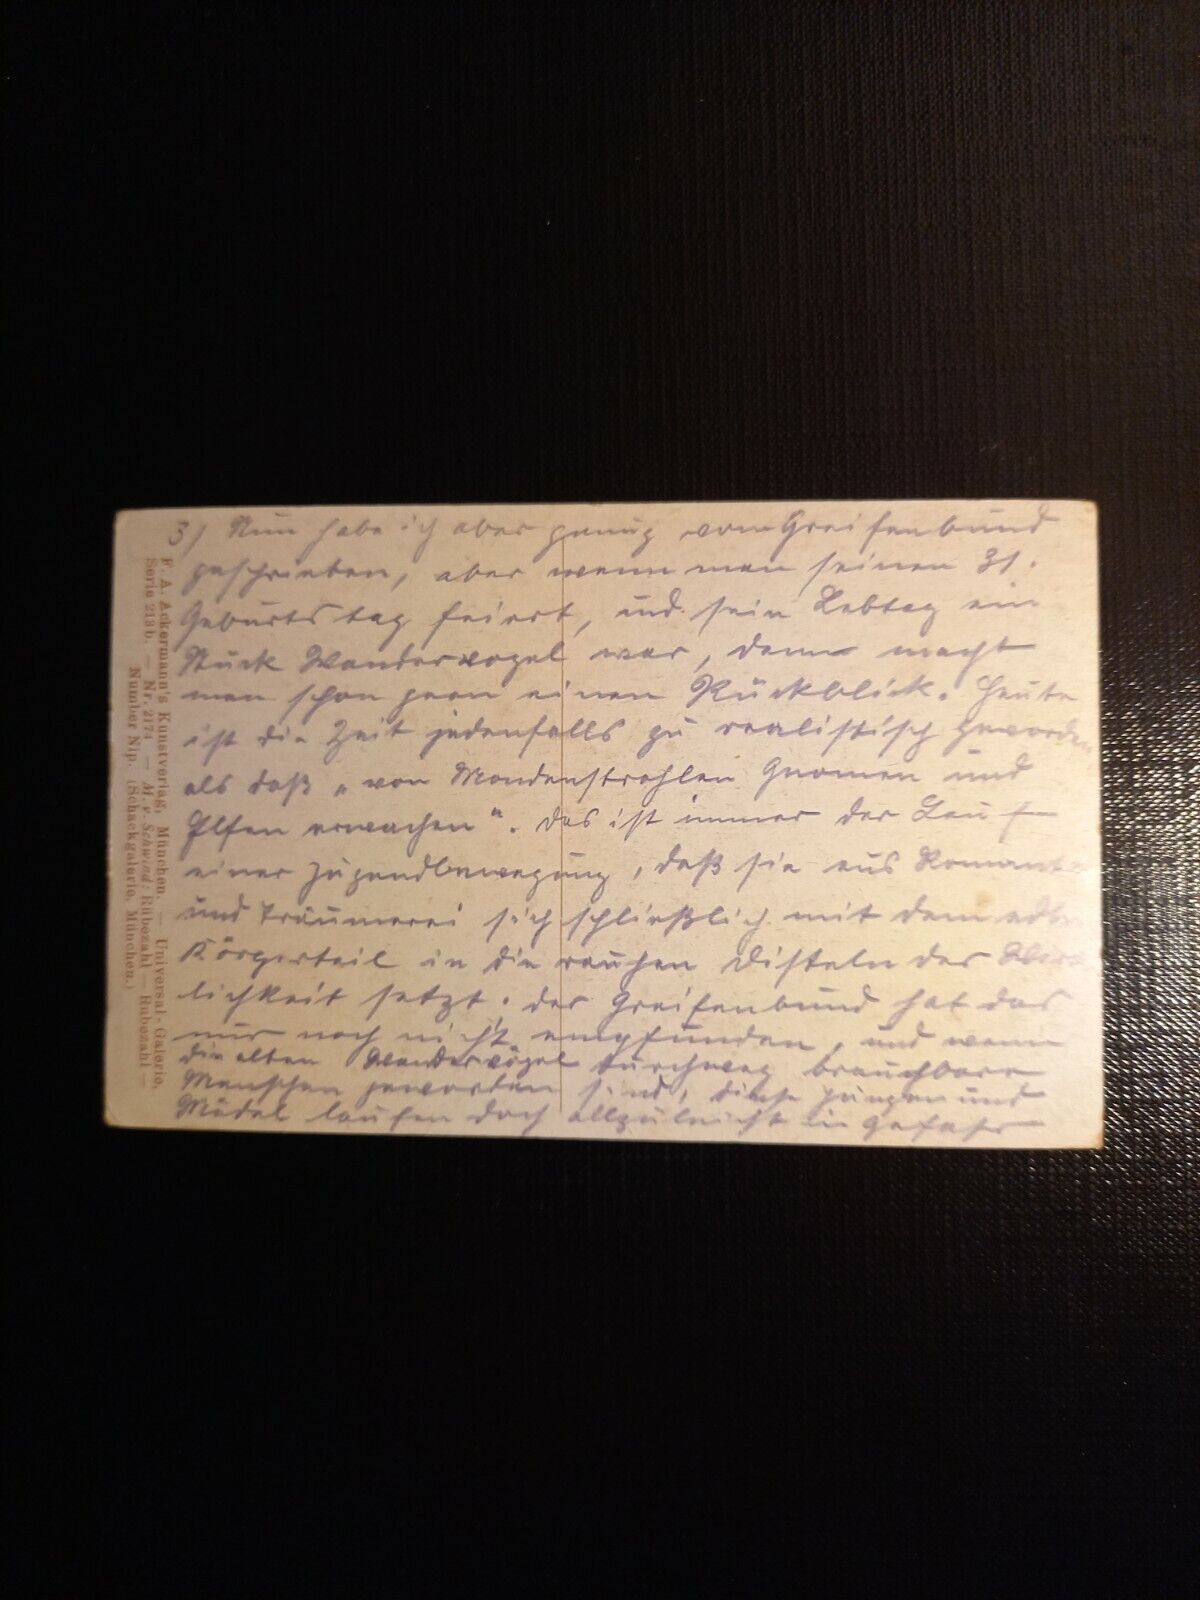 3) Nun habe ich aber genug vom Greifenbund
geschrieben, aber wenn man seinen 31.
Geburtstag feiert, und sein Lebtag ein
Stück Wandervogel war, dann macht
man schon gern einen Rückblick. Heute
ist die Zeit jedenfalls zu realistisch geworden
als daß „von Mondenstrahlen Gnomen und
Elfen erwachen". Das ist immer der Lauf
einer Jugendbewegung, daß sie aus Romantik
und Träumerei sich schließlich mit dem edlen
Körperteil in die rauhen Disteln der Wirk
lichkeit setzt. Der Greifenbund hat das
nur noch nicht empfunden, und wenn
die alten Wandervögel durchweg brauchbare
Menschen geworden sind, diese Jungen und
Mädel laufen doch allzuleicht in Gefahr
F. A. Ackermann's Kunstverlag, München. — Universal-Galerie,
Serie 213b. — Nr. 2174 — M. v. Schwind: Rübezahl — Rubezahl —
Number Nip. (Schackgalerie, München.)